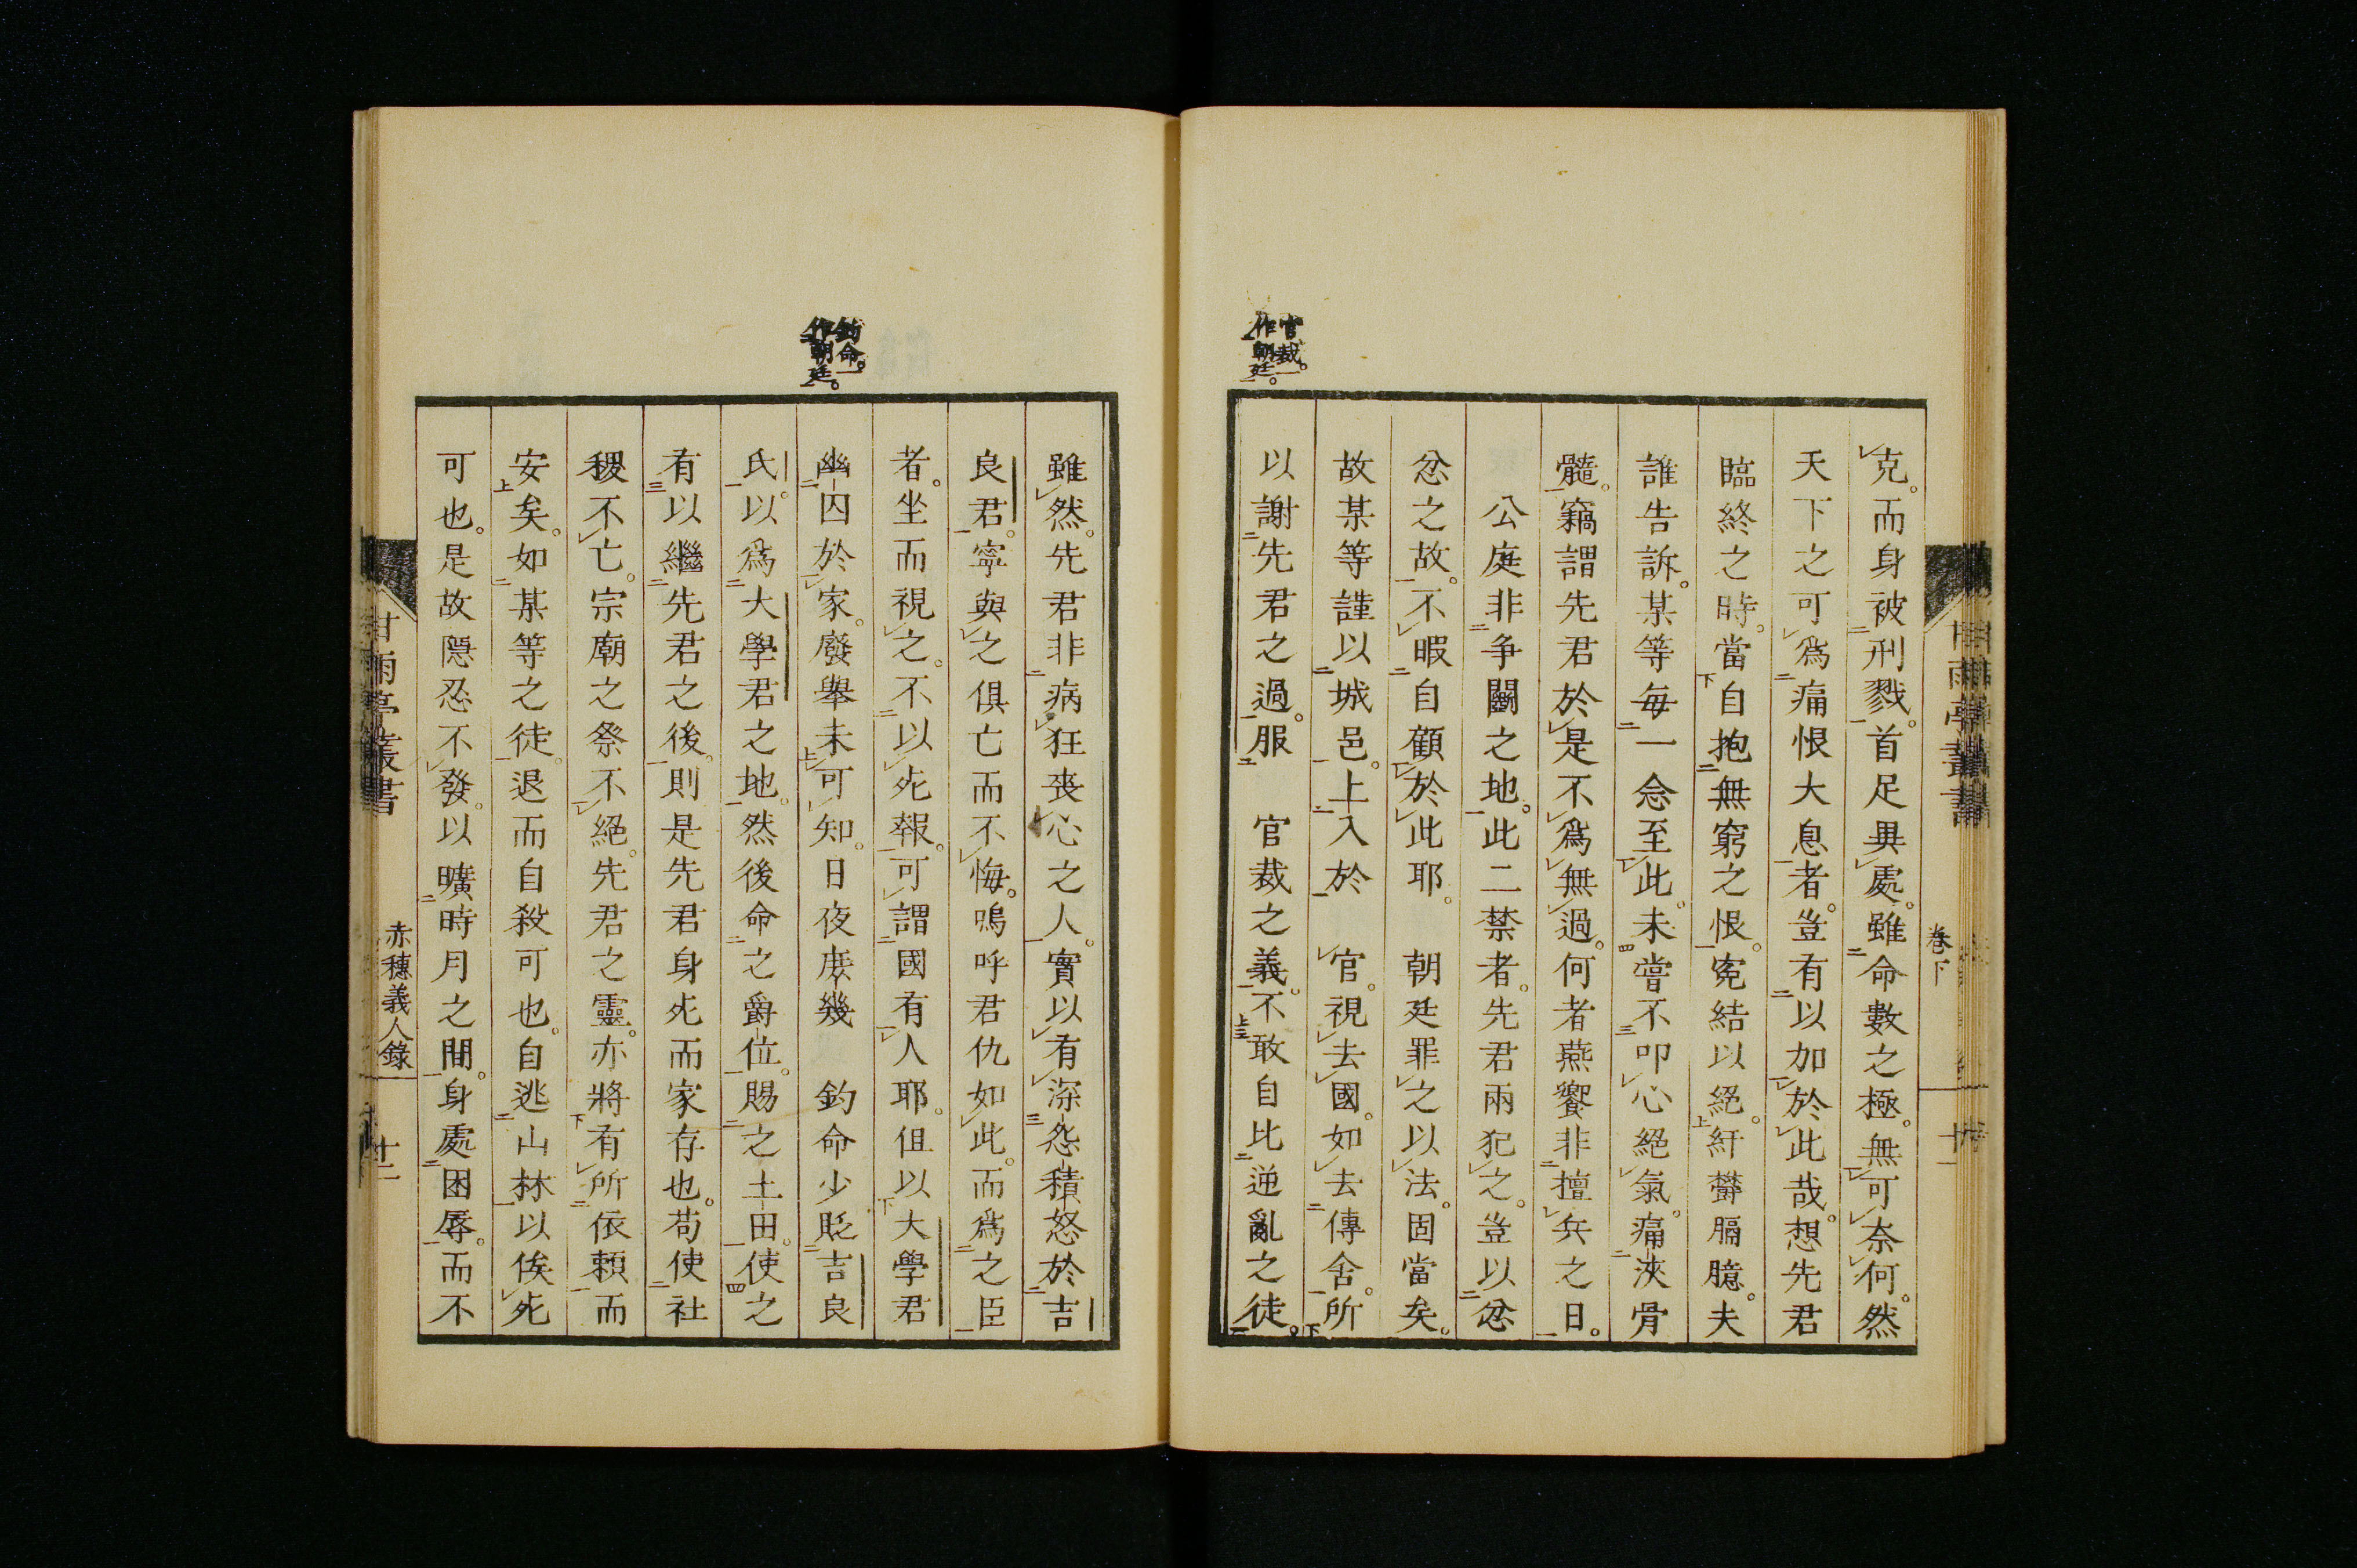 甘雨亭叢書
卷下
克。而身被刑戮。首足異處。雖命數之極。無可奈何。然
天下之可爲痛恨大息者。豈有以加於此哉。想先君
臨終之時。當自抱無窮之恨。寃結以絕。紆鬱膈臆。夫
誰告訴。某等每一念至此。未嘗不叩心絕氣。痛浹骨
髓。竊謂先君於是不爲無過。何者燕饗非擅兵之日。
公庭非争鬭之地。此二禁者。先君兩犯之。豈以忿
忿之故。不暇自顧於此耶。 朝廷罪之以法。固當矣。
故某等謹以城邑。上入於 官。視去國。如去傳舍。所
以謝先君之過。服 官裁之義。不敢自比逆亂之徒。
官裁。
作朝廷。
雖然。先君非病狂喪心之人。實以有深怨積怒於吉
良君。寧與之俱亡而不悔。嗚呼君仇如此。而爲之臣
者。坐而視之。不以死報。可謂國有人耶。但以大學君
幽囚於家。廢舉未可知。日夜庶幾 鈞命少貶吉良
鈞命。
作朝廷。
氏。以爲大學君之地。然後命之爵位。賜之土田。使之
有以繼先君之後。則是先君身死而家存也。苟使社
稷不亡。宗廟之祭不絕。先君之靈。亦將有所依賴而
安矣。如某等之徒。退而自殺可也。自逃山林以俟死
可也。是故隱忍不發。以曠時月之間。身處困辱。而不
甘雨亭叢書
赤穗義人錄